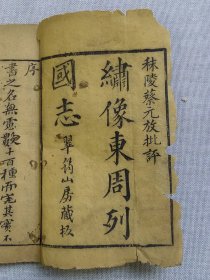 秣陵蔡元放批評
繡像東周列
國志
翠筠山房藏板
序
書之名無慮數十百種而究其實不